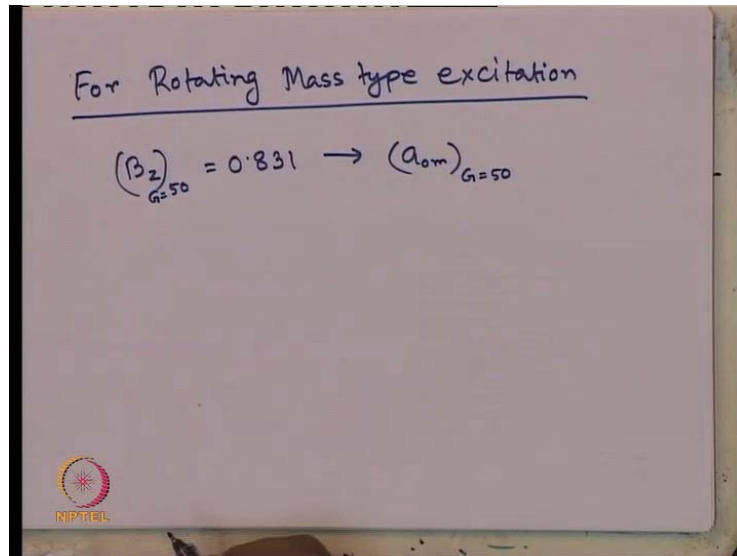 For Rotating Mass type excitation
(B_z)_{G=50} = 0.831 → (a_{om})_{G=50}
NPTEL